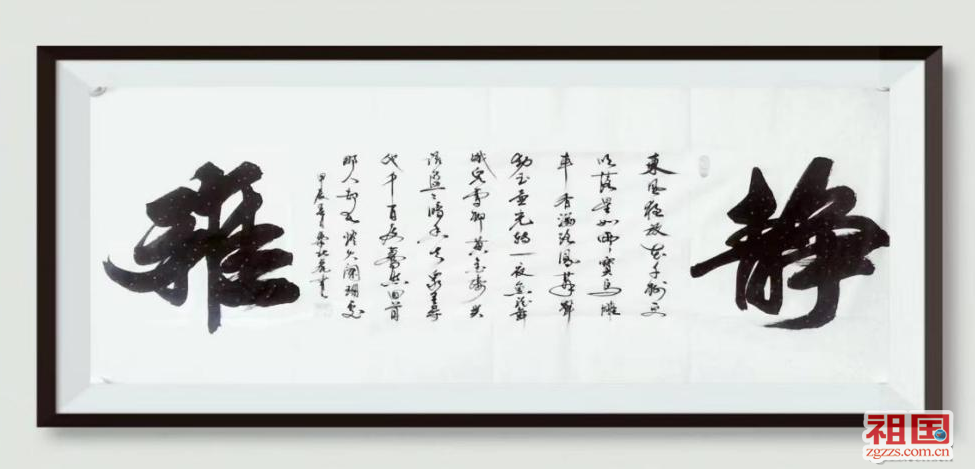 静
東風夜放花千樹更
吹落星如雨寶馬雕
車香滿路鳳簫聲
動玉壶光转一夜魚龍舞
蛾兒雪柳黄金缕笑
語盈々暗香去眾里尋
他千百度驀然回首
那人却在灯火闌珊處
甲辰年
雅
祖国
zgzzs.com.cn